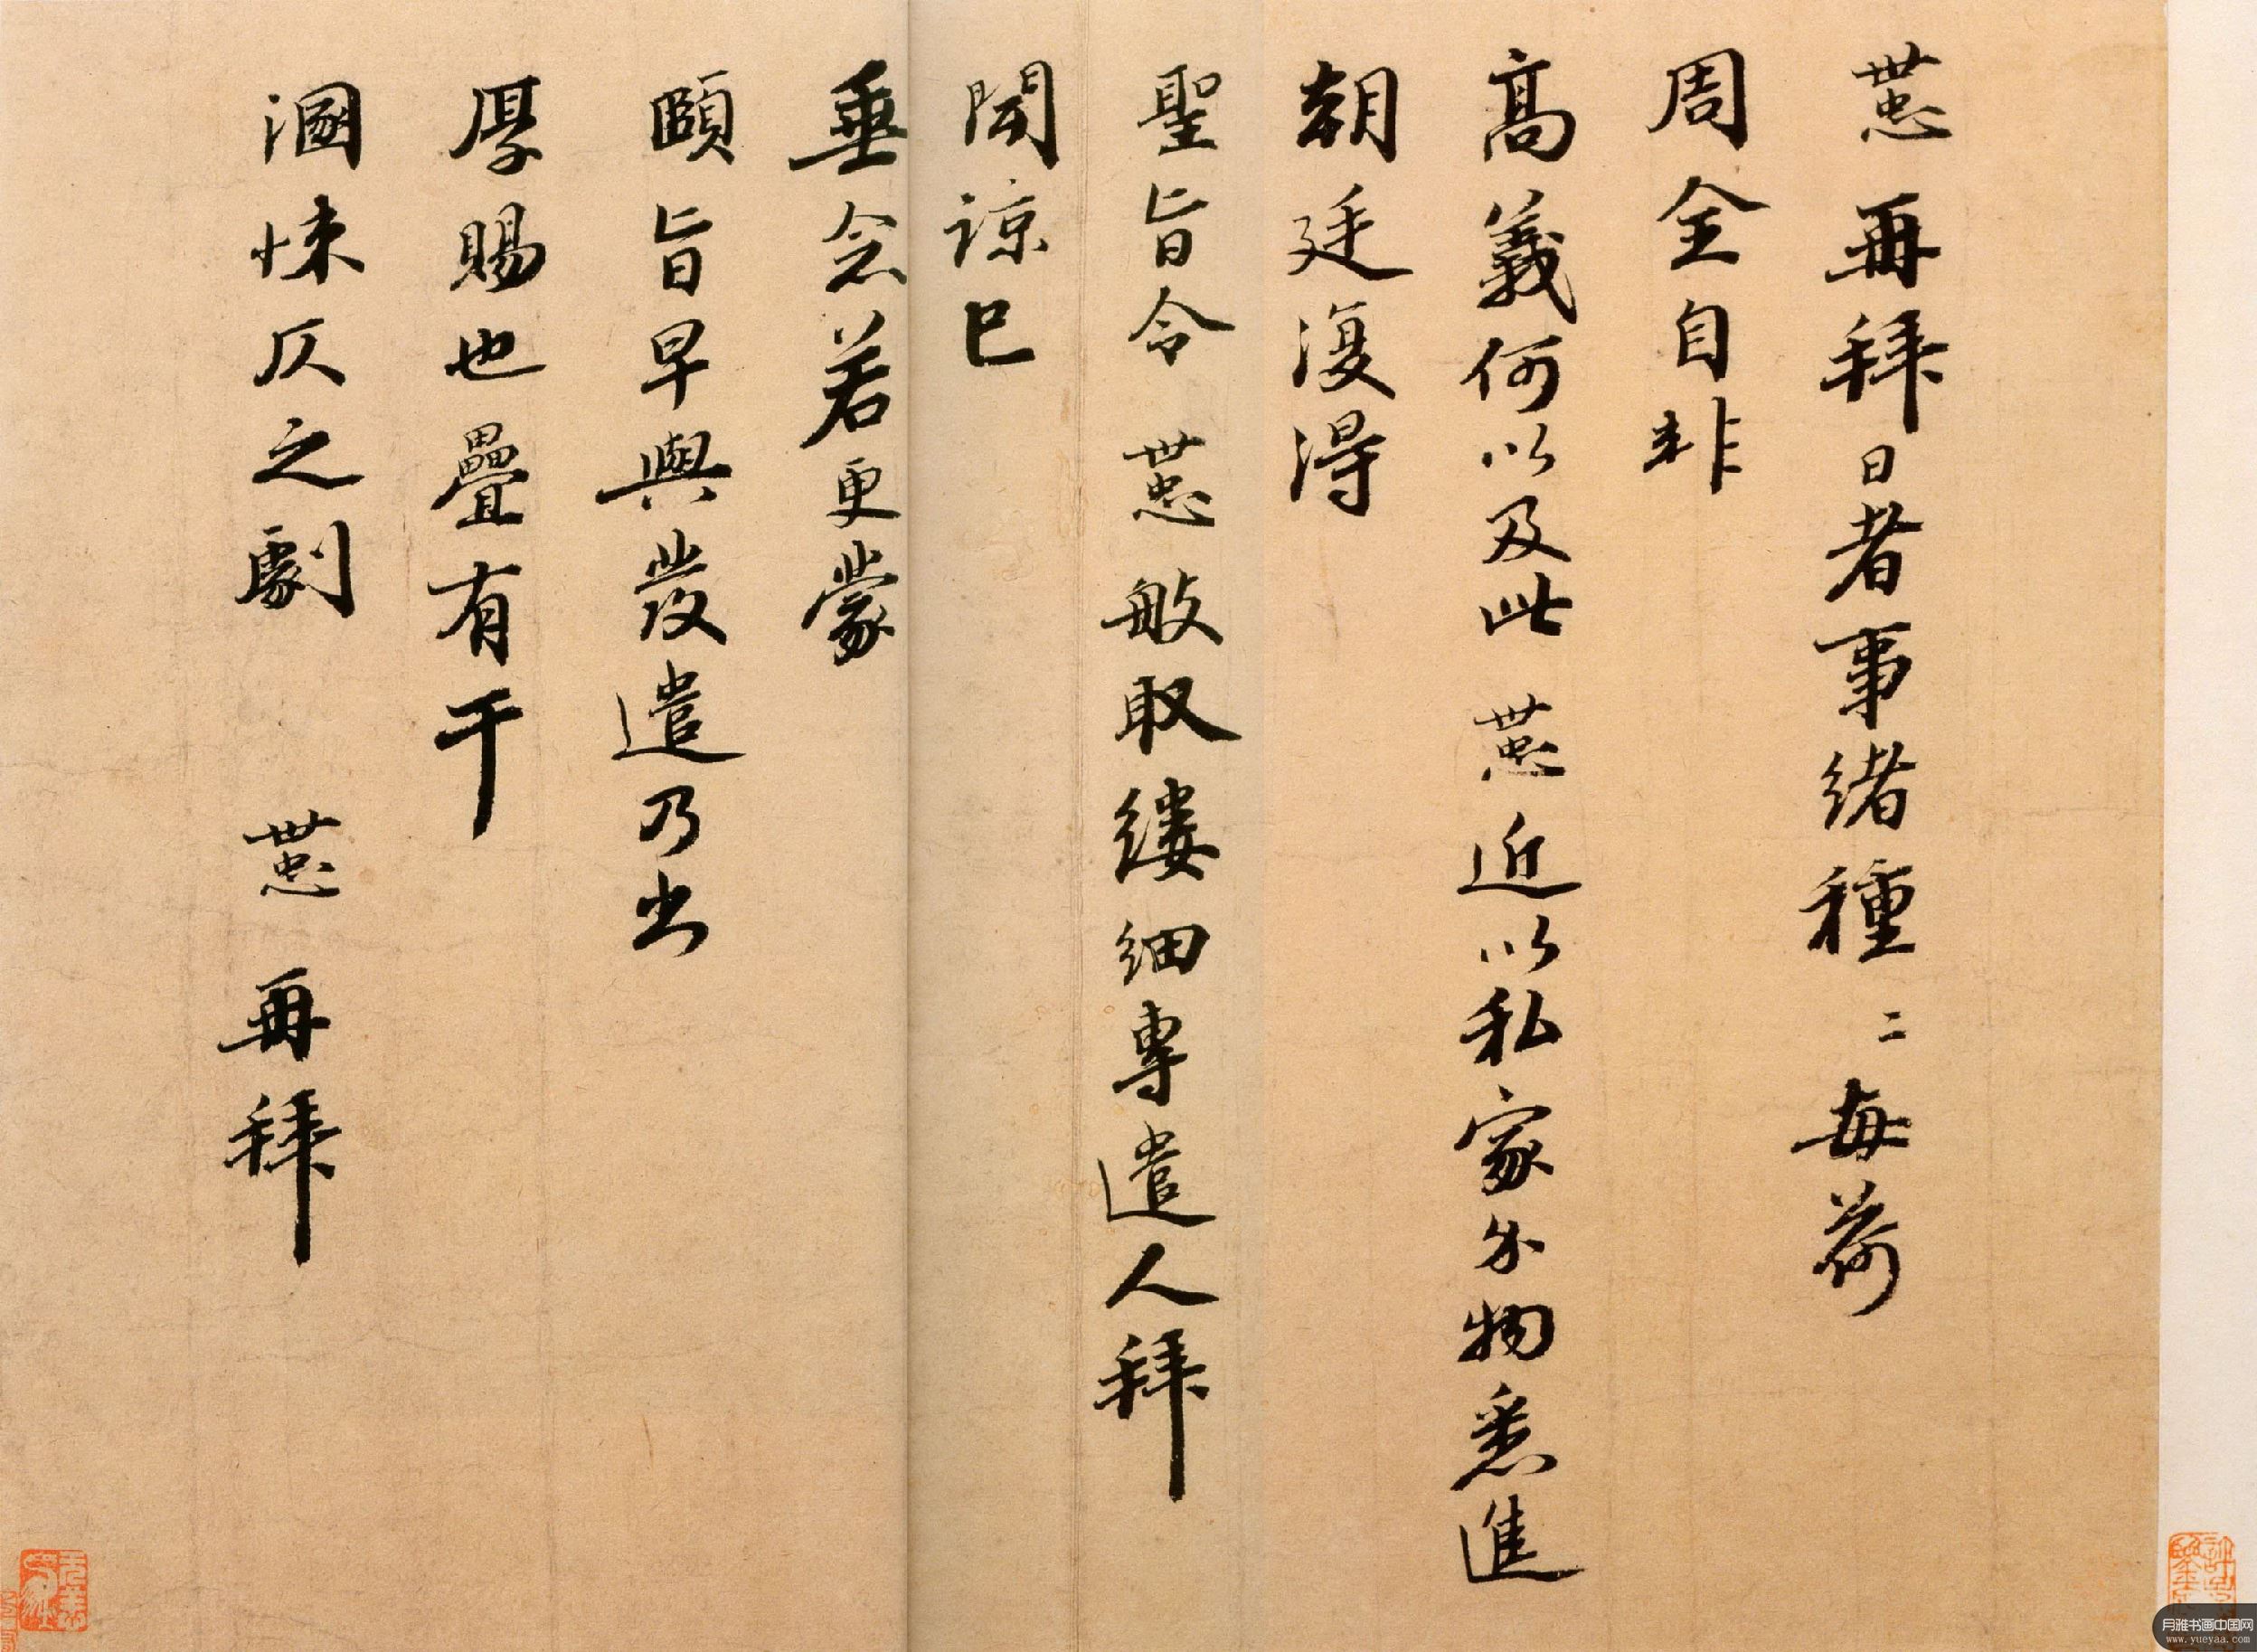 世忠再拜日者事緒種〻每荷
周全自非
高義何以及此世忠近以私家分物悉進
朝廷復得
聖旨令世忠般取縷細專遣人拜
聞諒已
垂念若更蒙
頤旨早與發遣乃出
厚賜也疊有干
溷悚仄之劇 世忠再拜
月雅书画中国网
www.yueyaa.com